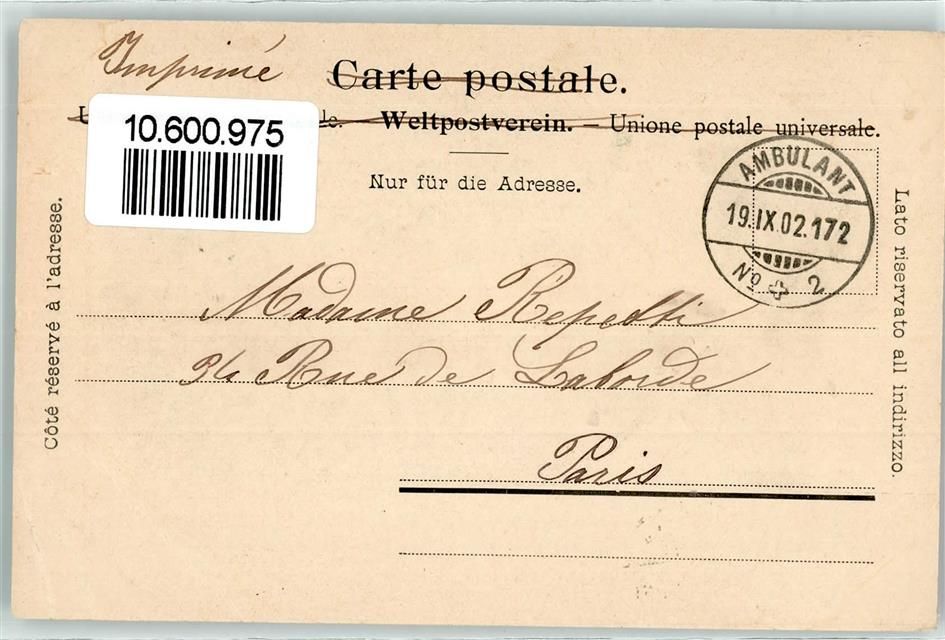 Imprimé
Carte postale.
10.600.975
le. – Weltpostverein. – Unione postale universale.
Nur für die Adresse.
AMBULANT
19.IX.02.172
No 2
Côté réservé à l'adresse.
Lato riservato all indirizzo.
Madame Repetti
Rue de Laborde
Paris